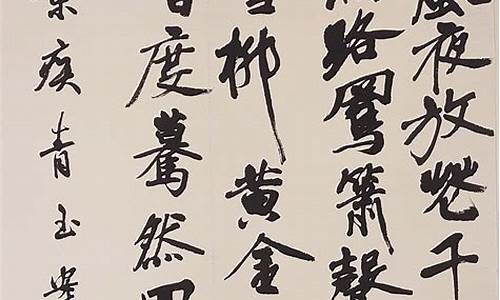 風夜放花千
滿路鳳簫聲
雪柳黄金
百度驀然回
棄疾青玉案